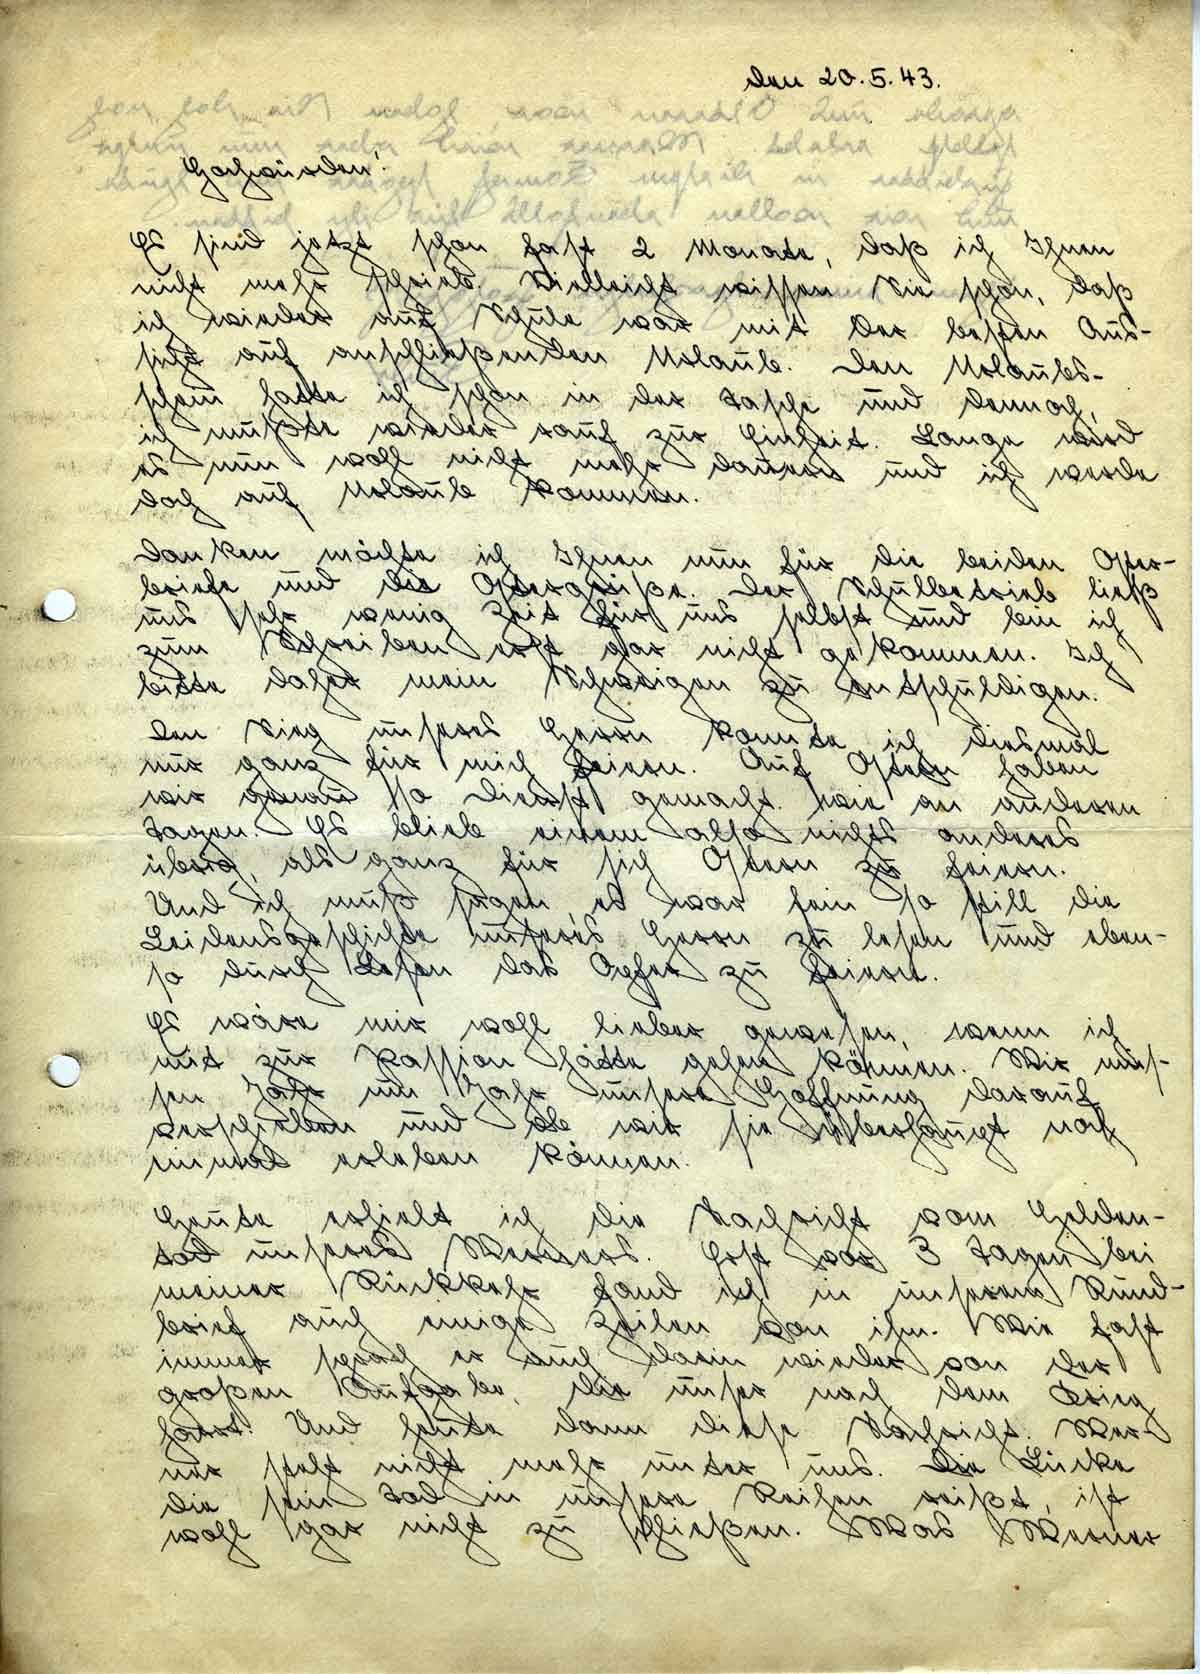 den 20.5.43.
Hochwürden!
Es sind jetzt schon fast 2 Monate, daß ich Ihnen
nicht mehr schrieb. Vielleicht wissen Sie schon, daß
ich wieder auf Schule war mit der besten Aus-
sicht auf anschließenden Urlaub. Den Urlaubs-
schein hatte ich schon in der Tasche und dennoch,
ich mußte wieder rauf zur Einheit. Lange wird
es nun wohl nicht mehr dauern und ich werde
doch auf Urlaub kommen.
Danken möchte ich Ihnen nun für die beiden Oster-
briefe und die Ostergrüße. Der Schulbetrieb ließ
uns sehr wenig Zeit für uns selbst und bin ich
zum Schreiben erst gar nicht gekommen. Ich
bitte daher mein Schweigen zu entschuldigen.
Den Sieg unseres Herrn konnte ich diesmal
nur ganz für mich feiern. Auf Ostern haben
wir genau so Dienst gemacht wie an anderen
Tagen. Es blieb einem also nichts anderes
übrig, als ganz für sich Ostern zu feiern.
Und ich muß sagen, es war fein so still die
Leidensgeschichte unseres Herrn zu lesen und eben-
so durch Lesen das Opfer zu feiern.
Es wäre mir wohl lieber gewesen, wenn ich
mit zur Passion hätte gehen können. Wir müs-
sen Jahr um Jahr unsere Hoffnung darauf
verschieben und ob wir sie überhaupt noch
einmal erleben können.
Heute erhielt ich die Nachricht vom Helden-
tod unseres Werners. Erst vor 3 Tagen bei
meiner Rückkehr fand ich in unserem Rund-
brief auch einige Zeilen von ihm. Wie fast
immer sprach er auch darin wieder von der
großen Aufgabe, die unser nach dem Krieg
harrt. Und heute dann diese Nachricht. Wer-
ner steht nicht mehr unter uns. Die Lücke
die sein Tod in unsere Reihen reißt, ist
wohl gar nicht zu schließen. Was Werner